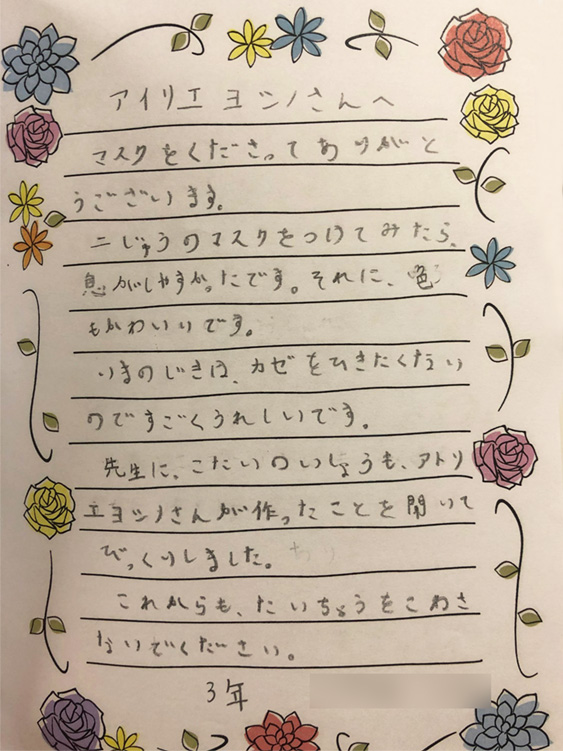 アイリエヨシノさんへ
マスクをくださってありがと
うございます。
二じゅうのマスクをつけてみたら、
息がしやすかったです。それに、色
もかわいいです。
いまのじきは、カゼをひきたくない
のですごくうれしいです。
先生に、こたいのいしょうも、アトリ
エヨシノさんが作ったことを聞いて
びっくりしました。
これからも、たいちょうをこわさ
ないでください。
3年